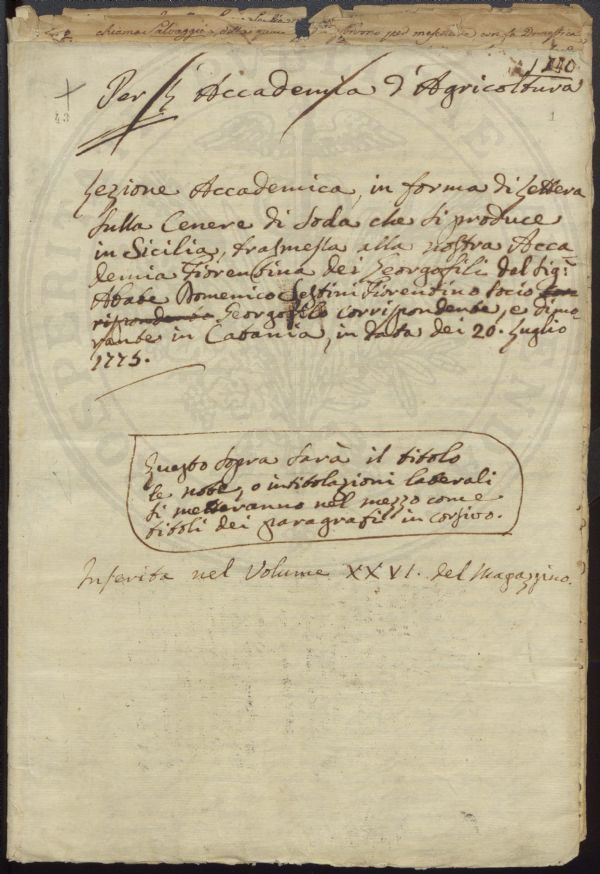 chiama Salvaggio, della quale si servono per mescolarla con la Domestica
140
Per l'Accademia d'Agricoltura
43
1
Lezione Accademica, in forma di Lettera
sulla Cenere di Soda che si produce
in Sicilia, trasmessa alla nostra Acca
demia Fiorentina dei Georgofili dal Sig:
Abate Domenico Sestini Fiorentino socio cor
rispondente Georgofilo corrispondente, e dimo
rante in Catania, in data dei 20. Luglio
1775.
Questo sopra sarà il titolo
le note, o intitolazioni laterali
si metteranno nel mezzo come
titoli dei paragrafi in corsivo.
Inserita nel Volume XXVI. del Magazzino.